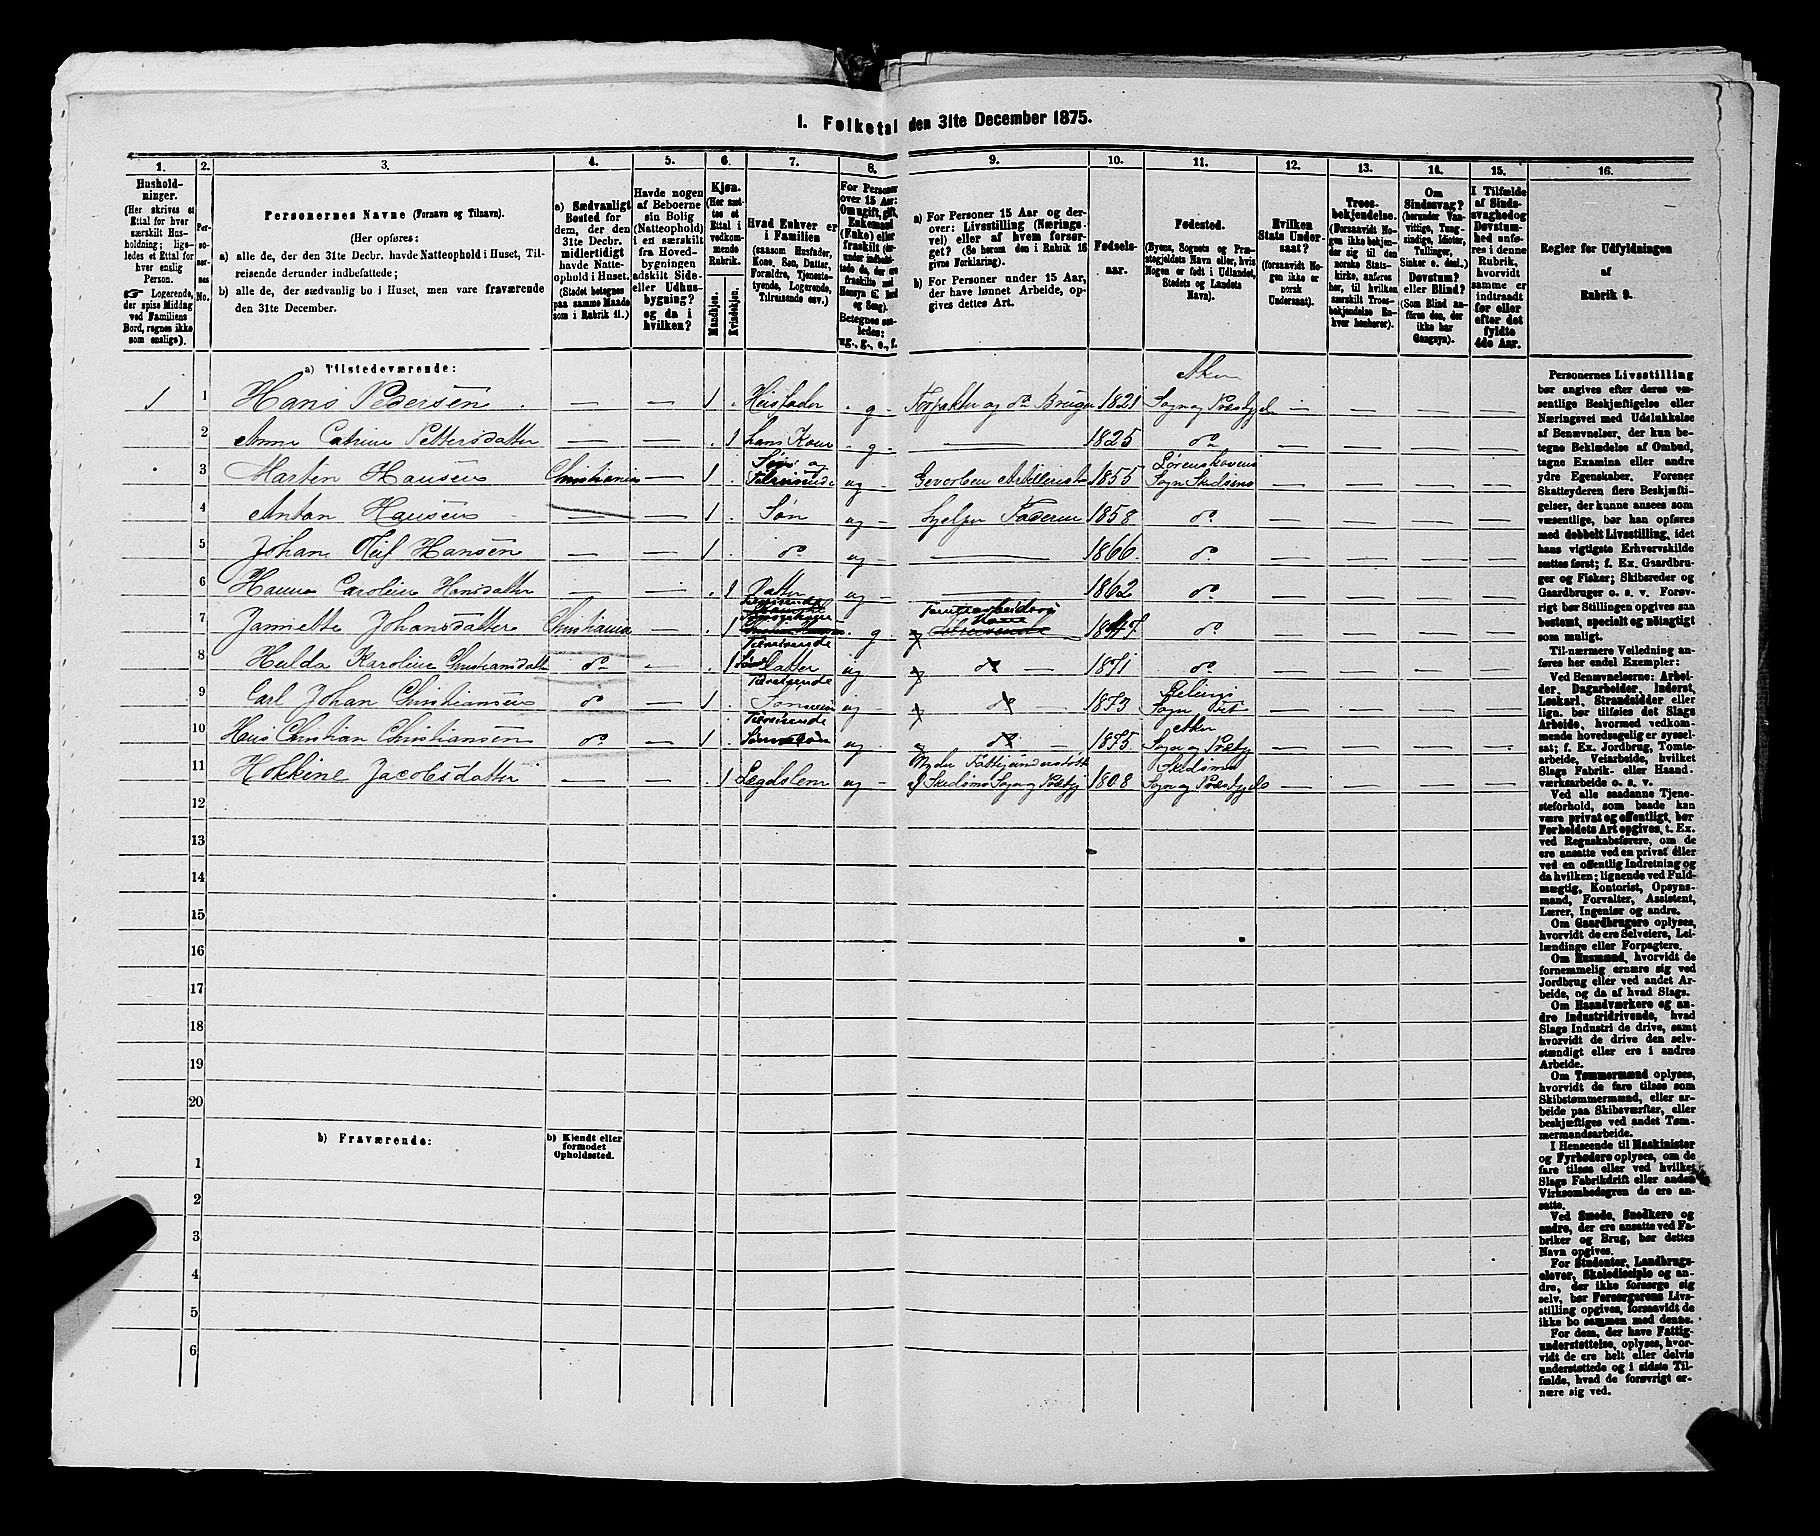 1. Folketal den 31te December 1875.
1. 2. 3. 4. 5. 6. 7. 8. 9. 10. 11. 12. 13. 14. 15. 16.
Hushold-
ninger.
(Her skrives et
Ettal for hver
særskilt Hus-
holdning; lige-
ledes et Ettal for
hver enslig
Person.
☞ Logerende,
der spise Middag
ved Familiens
Bord, regnes ikke
som enslige).
Per-
so-
ner-
nes
No.
Personernes Navne (Fornavn og Tilnavn).
(Her opføres:
a) alle de, der den 31te Decbr. havde Natteophold i Huset, Til-
reisende derunder indbefattede;
b) alle de, der sædvanlig bo i Huset, men vare fraværende
den 31te December.
a) Sædvanligt
Bosted for
dem, der den
31te Decbr.
midlertidigt
havde Natte-
ophold i Huset.
(Stedet betegnes
paa samme Maade
som i Rubrik 11.)
Havde nogen
af Beboerne
sin Bolig
(Natteophold)
i en særskilt
fra Hoved-
bygningen
adskilt Side-
eller Udhus-
bygning?
og da i
hvilken?
Kjøn.
(Her sæt-
tes et
Ettal i
vedkom-
mende
Rubrik.
Mandkjøn.
Kvindekjøn.
Hvad Enhver er
i Familien
(saasom Husfader,
Kone, Søn, Datter,
Forældre, Tjeneste-
tyende, Logerende,
Tilreisende osv.)
For Personer
over 15 Aar:
Om ugift, gift,
Enkemand
(Enke) eller
fraskilt (der-
under indbefat-
tede de, der ere
fraskilte med
Hensyn til Bord
og Seng).
Betegnes saa-
ledes:
ug., g., e., f.
a) For Personer 15 Aar og der-
over: Livsstilling (Nærings-
vei) eller af hvem forsør-
get? (Se herom den i Rubrik 16
givne Forklaring).
b) For Personer under 15 Aar,
der have lønnet Arbeide, op-
gives dettes Art.
Fødsels-
aar.
Fødested.
(Byens, Sognets og Præ-
stegjeldets Navn eller, hvis
Nogen er født i Udlandet,
Stedets og Landets
Navn).
Hvilken
Stats Under-
saat?
(forsaavidt No-
gen ikke er
norsk
Undersaat).
Troes-
bekjendelse.
(Forsaavidt No-
gen ikke bekjen-
der sig til den
norske Stats-
kirke, anføres
her, til hvilken
særskilt Troes-
bekjendelse En-
hver henhører).
Om
Sindssvag?
(herunder Van-
vittige, Tung-
sindige, Idioter,
Tullinger,
Sinker o. desl.)
Døvstum?
eller Blind?
(Som Blind an-
føres den, der
ikke har
Gangsyn).
I Tilfælde
af Sinds-
svaghed og
Døvstum-
hed anfø-
res i denne
Rubrik,
hvorvidt
samme er
indtraadt
før eller
efter det
fyldte
4de Aar.
Regler for Udfyldningen
af
Rubrik 9.
a) Tilstedeværende:
1 1 Hans Pedersen — — 1 . g Forpakter og do Bruger 1821 Aker Sogn og Præstgjeld
2 Anne Catrine Pettersdatter — — . 1 hans Kone g — 1825 do
3 Martin Hansen Christiania — 1 . Søn Tilreisende ug 1855 Sogn
4 Anton Hansen — — 1 . Søn ug Hjelper Faderen 1858 do
5 Johan Hansen — — 1 . do ug — 1866 do
6 Hanna Caroline Hansdatter — — . 1 Datter ug 1862 do
7 Jannette Johansdatter Christiania . 1 g do
8 Hulda Karoline Christiansdatt do — 1 Datter ug do 1871 do
9 Carl Johan Christiansen do — 1 . Tilreisende ug do 1873 Sogn
10 Christian Christiansen do — 1 . Tilreisende Sønnesøn ug do 1875 Aker Sogn og Præstgj
11 Jacobsdatter — — . 1 Lægdslem ug Nyder Fattigunderstøtt af Skedsmo Sogn og Præstgj 1808 Skedsmo Sogn og Præstegjeld
12
13
14
15
16
17
18
19
20
b) Fraværende:
b) Kjendt eller
formodet
Opholdssted.
1
2
3
4
5
6
Personernes Livsstilling
bør angives efter deres væ-
sentlige Beskjæftigelse eller
Næringsvei med Udelukkelse
af Benævnelser, der kun be-
tegne Beklædelse af Ombud,
tagne Examina eller andre
ydre Egenskaber. Forener
Skatteyderen flere Beskjæfti-
gelser, der kunne ansees som
væsentlige, bør han opføres
med dobbelt Livsstilling, idet
hans vigtigste Erhvervskilde
sættes først; f. Ex. Gaardbru-
ger og Fisker; Skibsreder og
Gaardbruger o. s. v. Forøv-
rigt bør Stillingen opgives saa
bestemt, specielt og nøiagtigt
som muligt.
Til nærmere Veiledning an-
føres her endel Exempler:
Ved Benævnelserne: Arbei-
der, Dagarbeider, Inderst,
Løskarl, Strandsidder eller
lign. bør tilføies det Slags
Arbeide, hvormed vedkom-
mende hovedsagelig er syssel-
sat; f. Ex. Jordbrug, Tomte-
arbeide, Veiarbeide, hvilket
Slags Fabrik- eller Haand-
værksarbeide o. s. v.
Ved alle saadanne Tjene-
steforhold, som baade kan
være privat og offentligt, bør
Forholdets Art opgives, t. Ex.
ved Regnskabsførere, om de
ere ansatte ved en privat eller
ved en offentlig Indretning og
da hvilken; lignende ved Fuld-
mægtig, Kontorist, Opsyns-
mand, Forvalter, Assistent,
Lærer, Ingeniør og andre.
Om Gaardbrugere oplyses,
hvorvidt de ere Selveiere, Lei-
lændinge eller Forpagtere.
Om Husmænd, hvorvidt de
fornemmelig ernære sig ved
Jordbrug eller ved andet Ar-
beide, og da af hvad Slags.
Om Haandværkere og an-
dre Industridrivende, hvad
Slags Industri de drive, samt
hvorvidt de drive den selv-
stændigt eller ere i andres
Arbeide.
Om Tømmermænd oplyses,
hvorvidt de fare tilsøs som
Skibstømmermænd, eller ar-
beide paa Skibsværfter, eller
beskjæftiges ved andet Tøm-
mermandsarbeide.
I Henseende til Maskinister
og Fyrbødere oplyses, om de
fare tilsøs eller ved hvilket
Slags Fabrikdrift eller anden
Virksomhedsgren de ere an-
satte.
Ved Smede, Snedkere og
andre, der ere ansatte ved Fa-
briker og Brug, bør dettes
Navn opgives.
For Studenter, Landbrugs-
elever, Skoledisciple og an-
dre, der ikke forsørge sig
selv, bør Forsørgerens Livs-
stilling opgives, forsaavidt de
ikke bo sammen med denne.
For dem, der have Fattig-
understøttelse, oplyses, hvor-
vidt de ere helt eller delvis
understøttede og i sidste Til-
fælde, hvad de forøvrigt er-
nære sig ved.